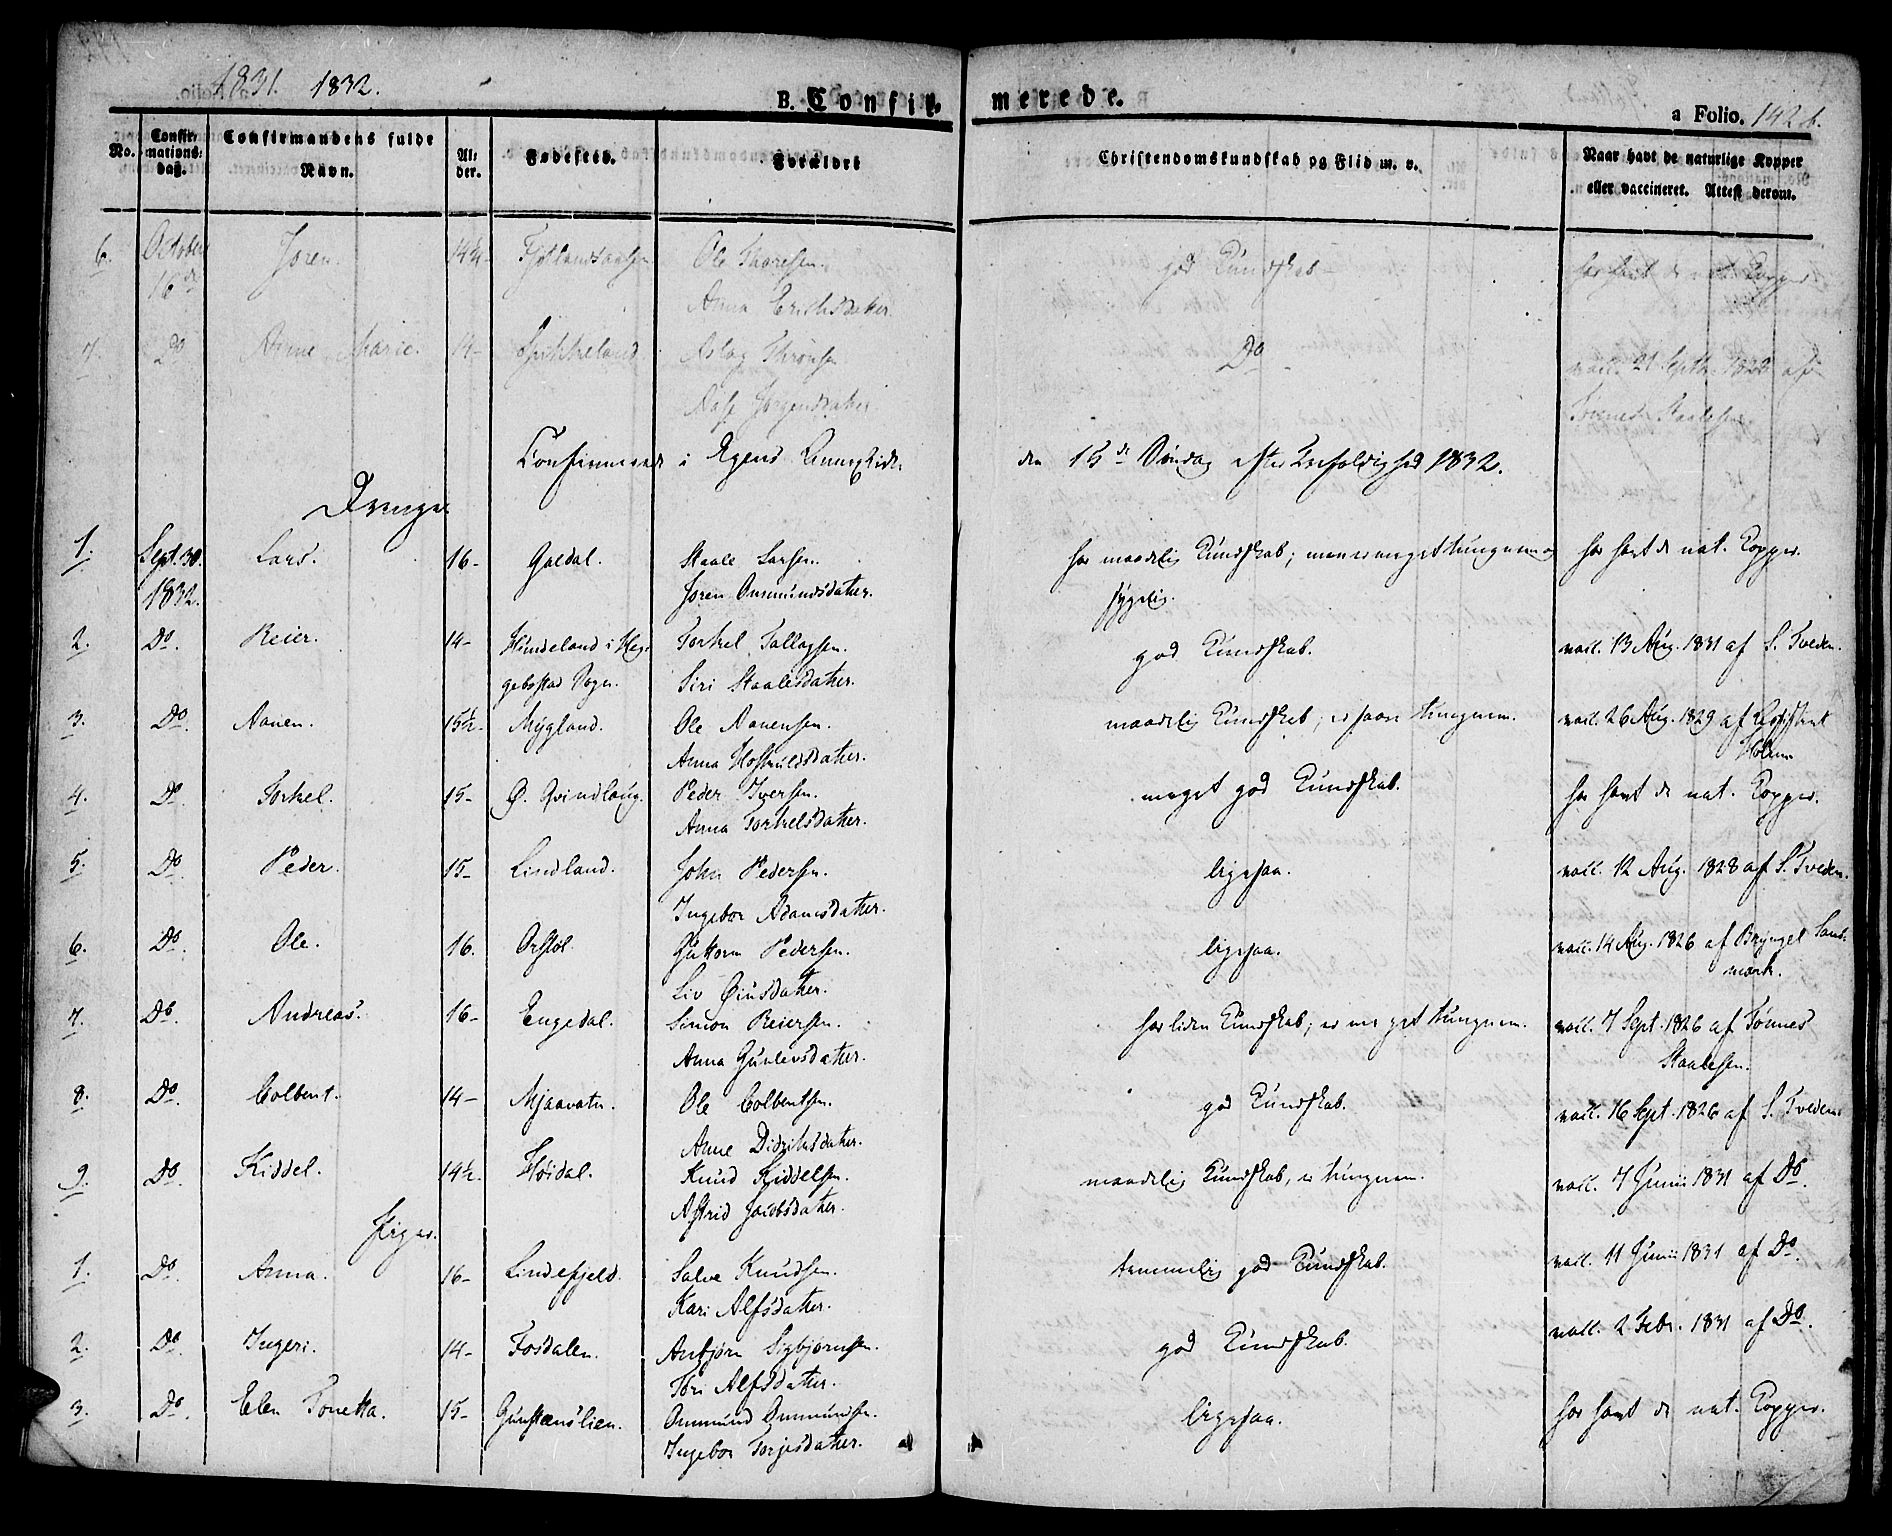 1831. 1832.
B. Confir- merede.
a Folio. 142 b.
No. Confir- mations- dag. Confirmandens fulde Navn. Al- der. Fødested. Forældre Christendomskundskab og Flid m. v. Naar havt de naturlige Kopper eller vaccineret. Attest derom.
6. October Joren. 14½- Ole Thoresen. god Kundskab- har havt de nat. Kopper.
16de Anna Erichsdatter.
7. Do Anne Marie. 14- Aslag Do vacc. 21 Septb. 1828 af
Aase Jørgensdatter Tønnes Staalesen
Confirmerede i Egens Annexkirke den 15de Søndag efter Trefoldighed 1832.
Drenge.
1. Sept. 30. Lars. 16- Galdal. Staale Larsen. har maadelig Kundskab; men er meget tungnem og har havt de nat. Kopper.
1832. Joren Ommundsdatter. sygelig.
2. Do. Reier. 14- Hindeland i Heg- Torkel Tallagsen. god Kundskab. vacc. 13 Aug. 1831 af S. Tveden.
gebostad Sogn. Siri Staalesdatter.
3. Do Aanen. 15½- Mygland. Ole Aanensen. maadelig Kundskab; er saare tungnem. vacc. 26 Aug. 1829 af Assistent
Anna Holm
4. Do Torkel. 15- Ø. Qvindlaug. Peder Iversen. meget god Kundskab. har havt de nat. Kopper.
Anna Torkelsdatter.
5. Do Peder. 15- Lindland. John Pedersen. ligesaa. vacc. 12 Aug. 1828 af S. Tveden.
Ingebor Adamsdatter.
6. Do. Ole. 16. Ørstøl. Guttorm Pedersen. ligesaa. vacc. 14 Aug. 1826 af Brynget Land-
Liv Øiusdatter. mark.
7. Do. Andreas. 16- Engedal. Simon Reiersen. har liden Kundskab; er meget tungnem. vacc. 7 Sept. 1826 af Tønnes
Anna Gunlevsdatter. Staalesen.
8. Do. Colbent. 14- Mjaavatn. Ole Colbentsen. god Kundskab. vacc. 16 Sept. 1826 af S. Tveden.
Anne Didriksdatter.
9. Do. Kiddel. 14½. Høidal. Knud Kiddelsen. maadelig Kundskab, er tungnem. vacc. 7 Junii 1831 af Do.
Astrid Jacobsdatter.
Piger.
1. Do. Anna. 16- Lindefjeld. Salve Knudsen. temmelig god Kundskab. vacc. 11 Junii 1831 af Do.
Kari Alfsdatter.
2. Do. Ingeri. 14- Fosdalen. Anbjørn Sigbjørnsen. god Kundskab. vacc. 2 Febr. 1831 af Do.
Tori Alfsdatter.
3. Do. Elen Tonetta. 15- Gunstenslien. Ommund Ommundsen. ligesaa. har havt de nat. Kopper.
Ingebor Torjesdatter.